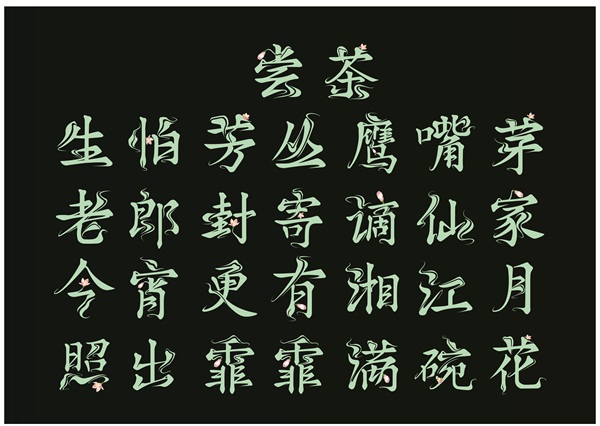 尝茶
生怕芳丛鹰嘴芽
老郎封寄谪仙家
今宵更有湘江月
照出霏霏满碗花